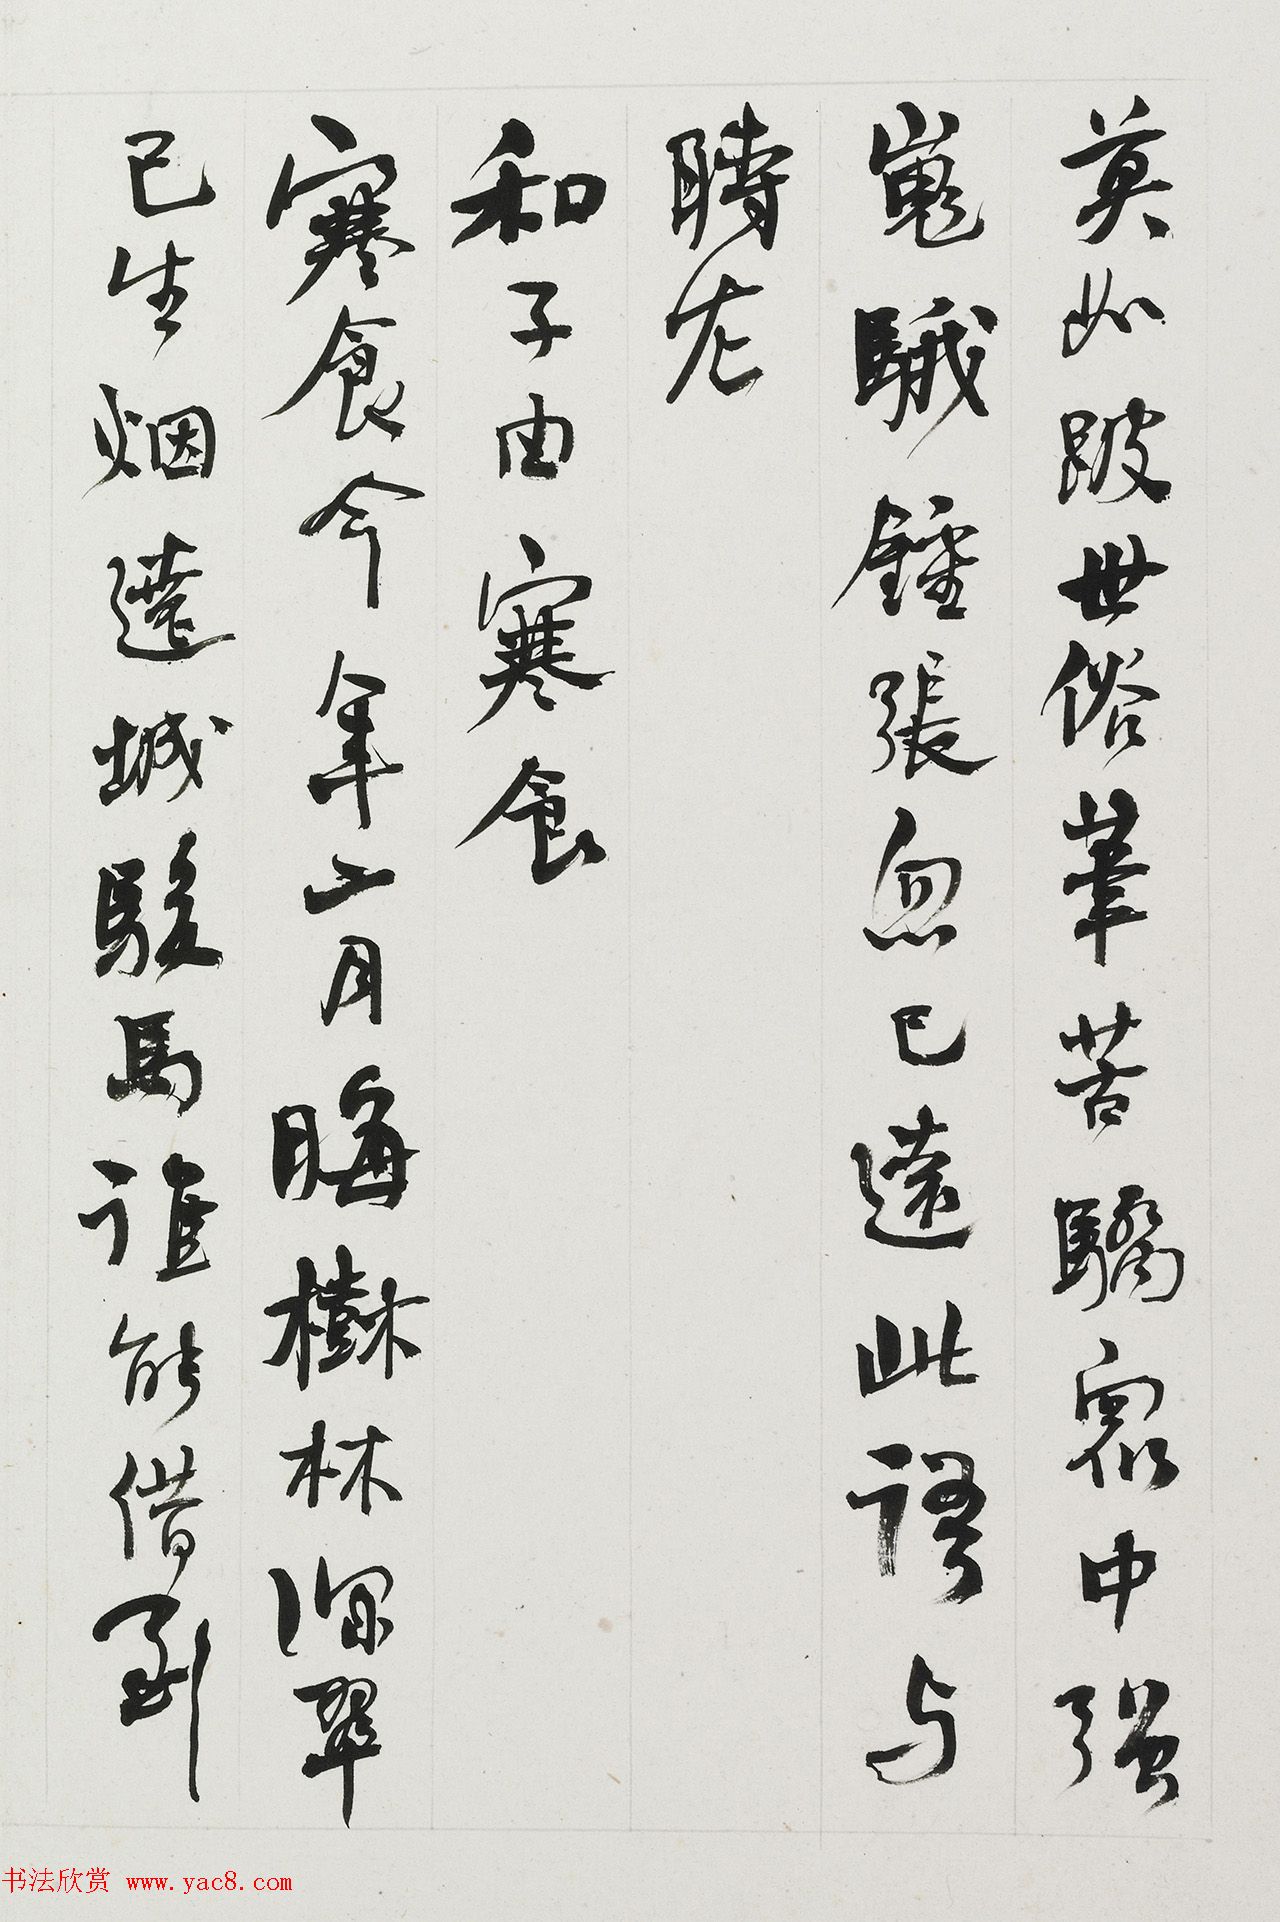 莫如跛世俗筆苦驕衆中強
嵬騀鍾張忽已遠此語与
時左
和子由寒食
寒食今年二月晦樹林深翠
已生烟遶城駿馬誰能借到
书法欣赏 www.yac8.com